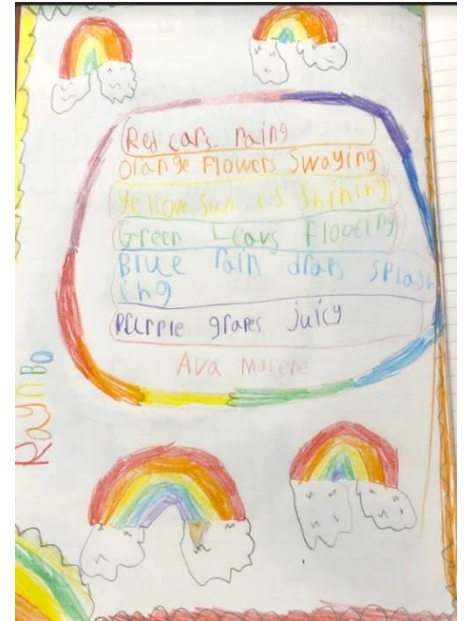 Red cars. raing
Orange Flowers Swaying
Yellow Sun is Shining
Green Leavs Floeting
Blue rain drops splash
ing
Purple grapes juicy
Ava
RaynBo